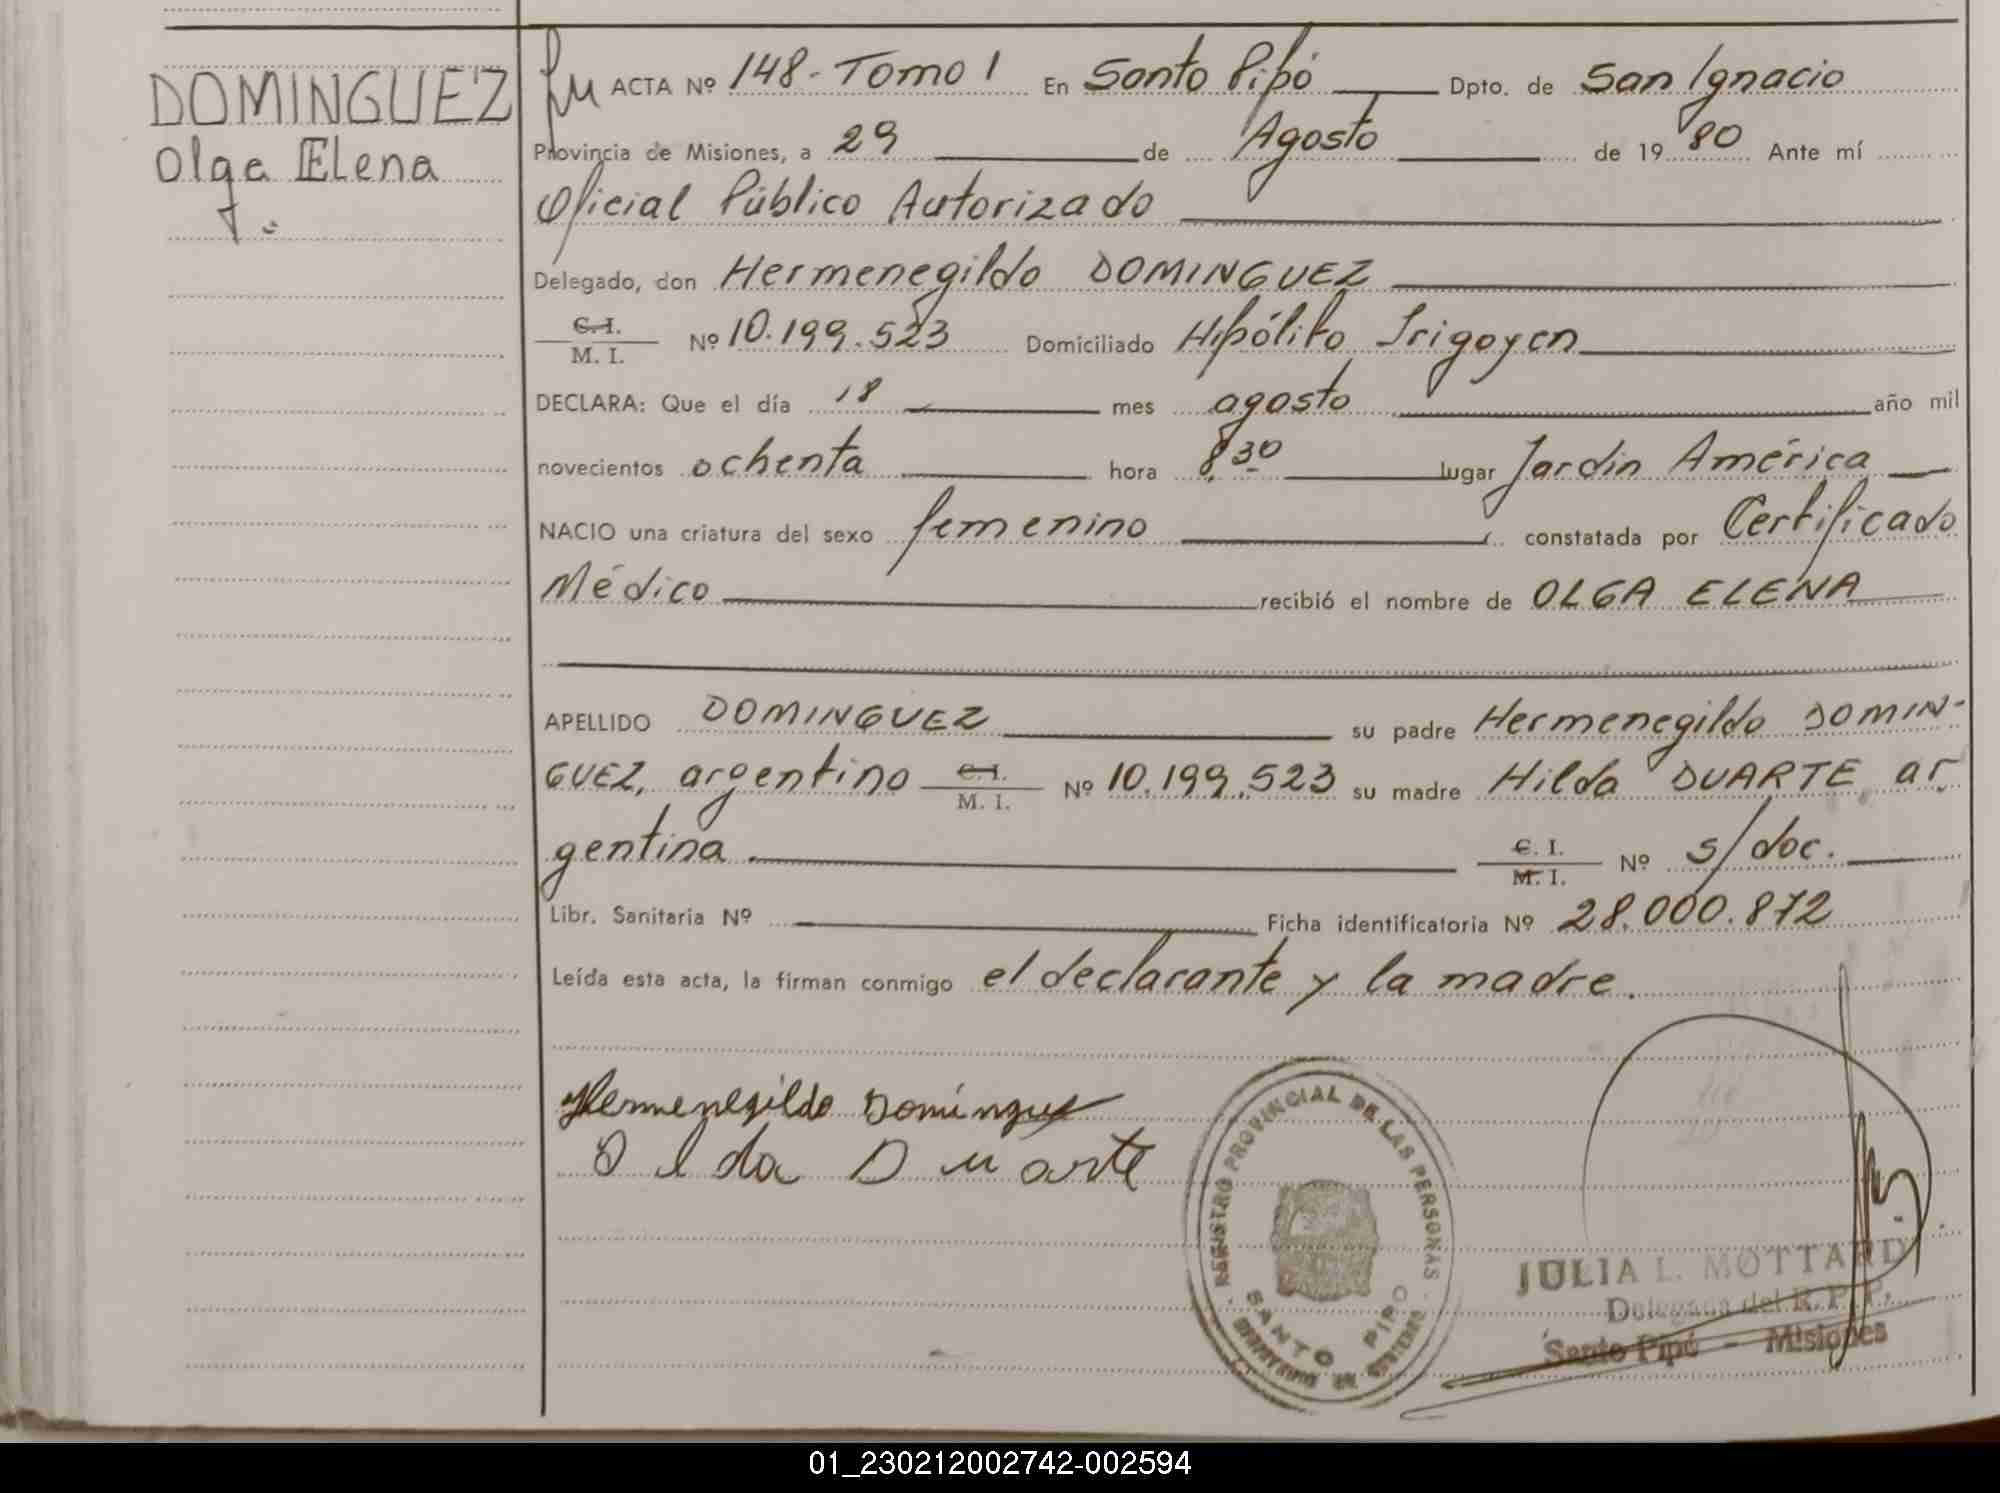 DOMINGUEZ
Olga Elena
ACTA Nº 148 - Tomo 1 En Santo Pipó Dpto. de San Ignacio
Provincia de Misiones, a 29 de Agosto de 1980 Ante mí
Oficial Público Autorizado
Delegado, don Hermenegildo DOMINGUEZ
C. I.
M. I. Nº 10.199.523 Domiciliado Hipólito Irigoyen
DECLARA: Que el día 18 mes agosto año mil
novecientos ochenta hora 8,30 lugar Jardin América
NACIO una criatura del sexo femenino constatada por Certificado
Médico recibió el nombre de OLGA ELENA
APELLIDO DOMINGUEZ su padre Hermenegildo DOMIN-
GUEZ, argentino C. I. M. I. Nº 10.199.523 su madre Hilda DUARTE, ar
gentina C. I. M. I. Nº s/doc.
Libr. Sanitaria Nº Ficha identificatoria Nº 28.000.872
Leída esta acta, la firman conmigo el declarante y la madre.
Hermenegildo Dominguez
Ilda Duarte
REGISTRO PROVINCIAL DE LAS PERSONAS
SANTO PIPO
JULIA L. MOTTARD
Delegada del R. P. P.
Santo Pipó - Misiones
01_230212002742-002594